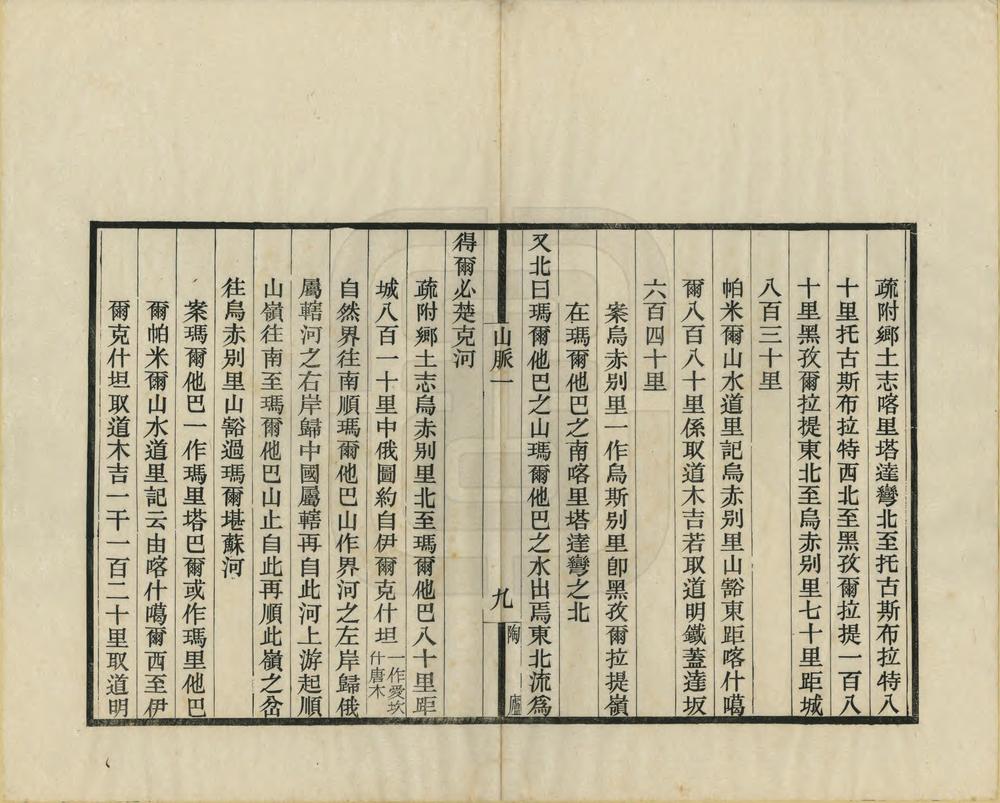 疏附鄉土志喀里塔達彎北至托古斯布拉特八
十里托古斯布拉特西北至黑孜爾拉提一百八
十里黑孜爾拉提東北至烏赤别里七十里距城
八百三十里
帕米爾山水道里記烏赤别里山豁東距喀什噶
爾八百八十里係取道木吉若取道明鐵蓋達坂
六百四十里
案烏赤别里一作烏斯别里卽黑孜爾拉提嶺
在瑪爾他巴之南喀里塔達彎之北
又北曰瑪爾他巴之山瑪爾他巴之水出焉東北流爲
山脈一
九
陶
廬
得爾必楚克河
疏附鄉土志烏赤别里北至瑪爾他巴八十里距
城八百一十里中俄圖約自伊爾克什坦一作愛坎
什唐木
自然界往南順瑪爾他巴山作界河之左岸歸俄
屬轄河之右岸歸中國屬轄再自此河上游起順
山嶺往南至瑪爾他巴山止自此再順此嶺之岔
往烏赤别里山豁過瑪爾堪蘇河
案瑪爾他巴一作瑪里塔巴爾或作瑪里他巴
爾帕米爾山水道里記云由喀什噶爾西至伊
爾克什坦取道木吉一千一百二十里取道明